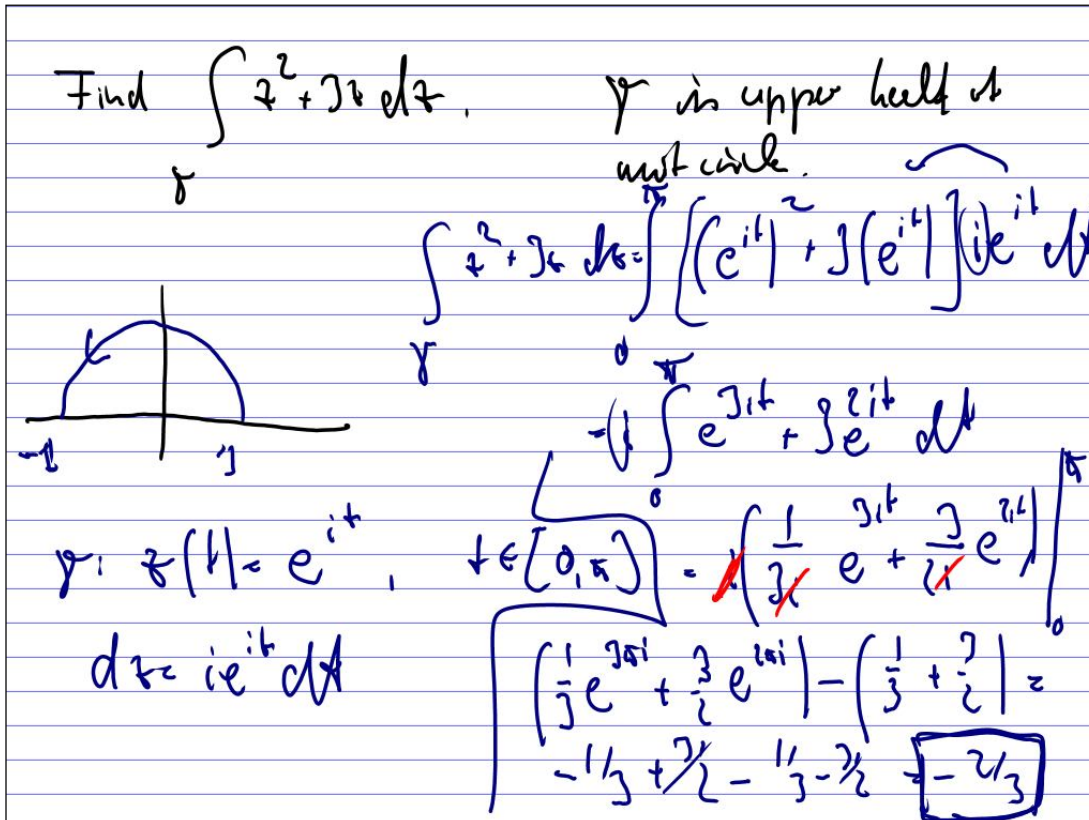 Find ∫_γ z² + 3z dz. γ is upper half of
unit circle.
∫_γ z² + 3z dz = ∫_0^π [(e^{it})² + 3(e^{it})](i)e^{it} dt
= (i) ∫_0^π e^{3it} + 3e^{2it} dt
-1 1
γ: z(t) = e^{it}, t ∈ [0, π] = i(1/(3i) e^{3it} + 3/(2i) e^{2it}) |_0^π
dz = ie^{it} dt
(1/3 e^{3πi} + 3/2 e^{2πi}) - (1/3 + 3/2) =
-1/3 + 3/2 - 1/3 - 3/2 = -2/3